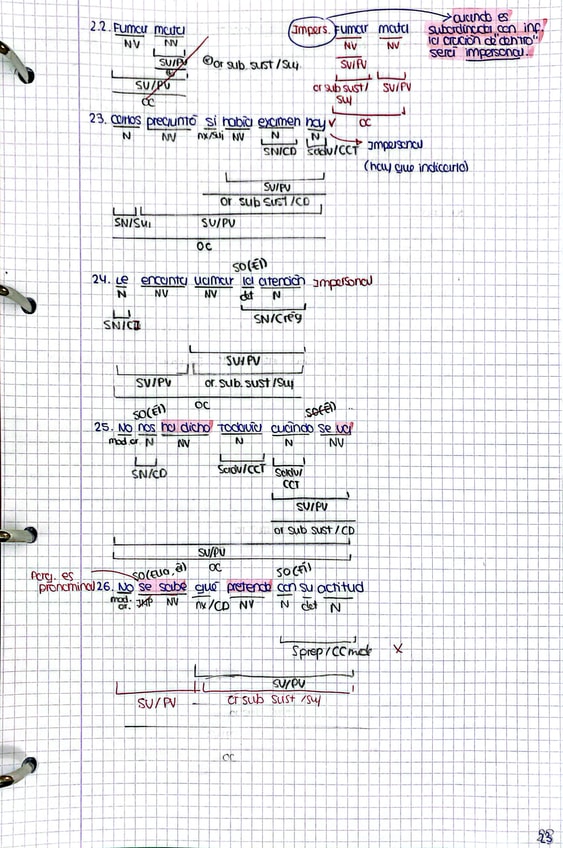 2.2. Fumar mata
NV NV
SV/PV
SV/PV
OC
or sub. sust / Suj
Impers. Fumar mata
NV NV
SV/PV
or sub sust / Suj
SV/PV
OC
cuando es
subordinada con inf.
la oración de "dentro"
será impersonal.
23. Carlos preguntó si había examen hoy ✓
N NV nx/Suj NV N N
SN/CD Sadv/CCT
Impersonal
(hay que indicarlo)
SV/PV
or sub sust / CD
SN/Suj SV/PV
OC
SO(Él)
24. Le encanta llamar la atención Impersonal
N NV NV det N
SN/CI SN/C rég
SV/PV
SV/PV or. sub. sust / Suj
OC
SO(Él) SO(Él)
25. No nos ha dicho Todavía cuándo se va
mod or. N NV N N NV
SN/CD Sadv/CCT Sadv/
CCT
SV/PV
or sub sust / CD
SV/PV
OC
Porq. es
pronominal
SO(Ella, él) SO(Él)
26. No se sabe qué pretende con su actitud
mod. or. IMP NV nx/CD NV N det N
Sprep/CC modo X
SV/PV
SV/PV or sub sust / Suj
OC
23